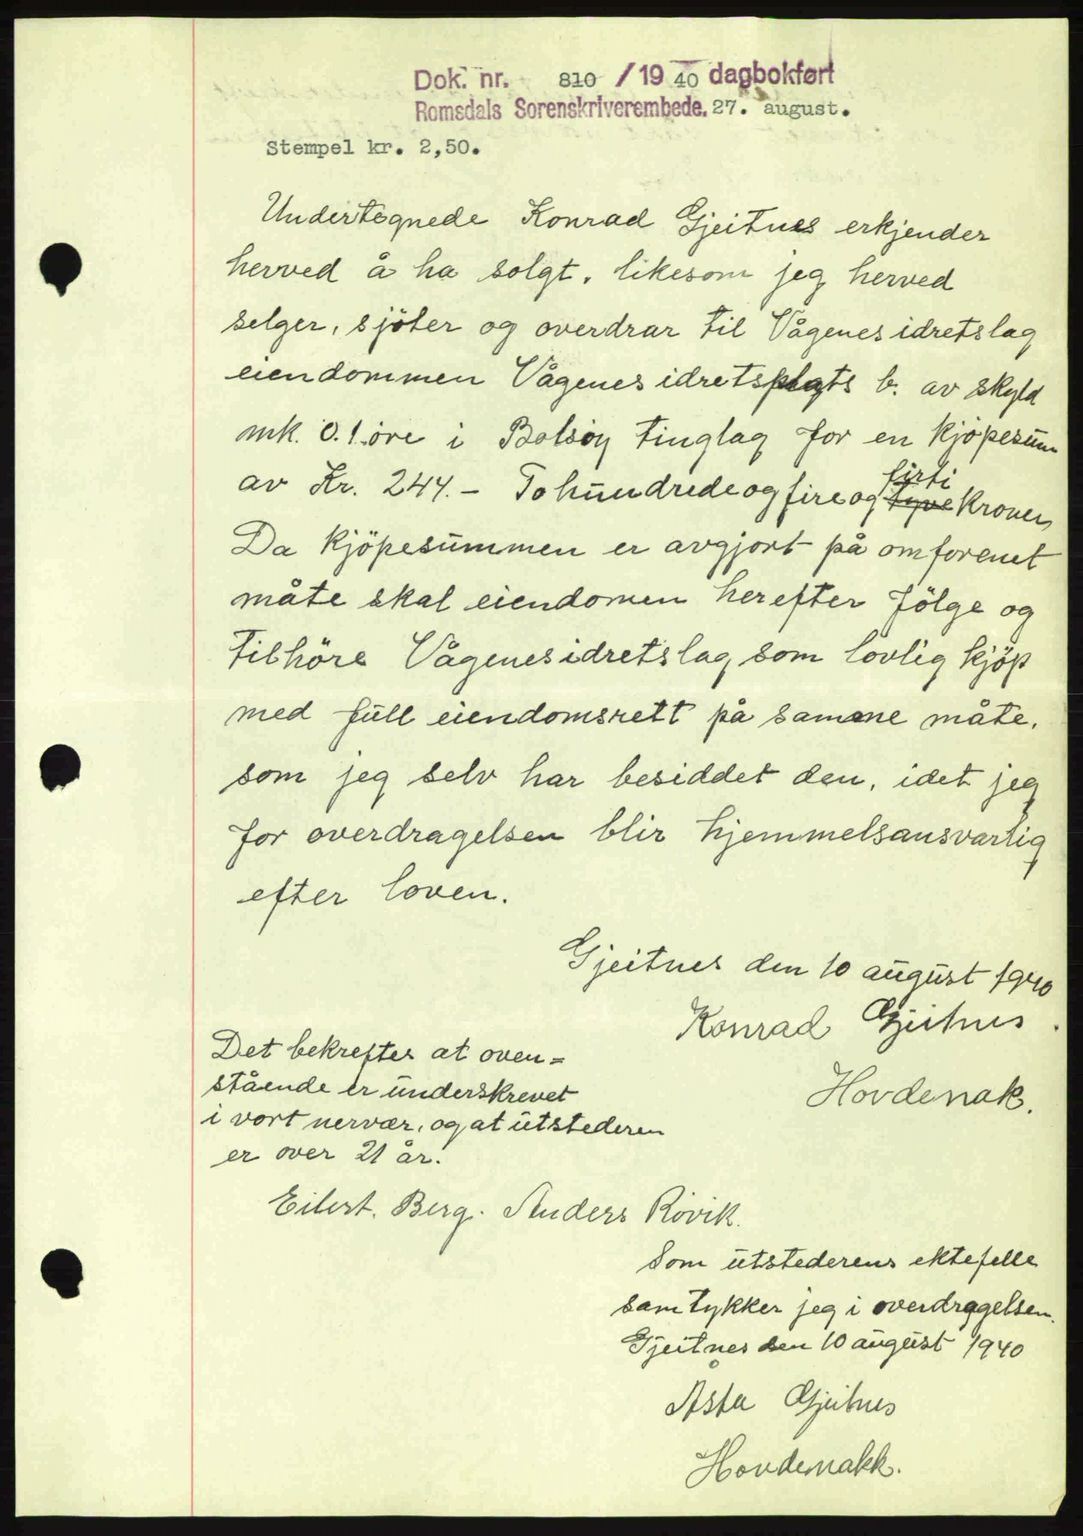 Dok. nr. 810 / 19 40 dagbokført
Romsdals Sorenskriverembede. 27. august.
Stempel kr. 2,50.
Undertegnede Konrad Gjeitnes erkjender
herved å ha solgt, likesom jeg herved
selger, sjöter og overdrar til Vågenes idretslag
eiendommen Vågenes idretsplats b. av skyld
mk. 0.1 öre i Bolsöy tinglag for en kjöpesum
av Kr. 244.- To hundrede og fire og firti
tyve Kroner
Da kjöpesummen er avgjort på omforenet
måte skal eiendomen herefter fölge og
tilhöre Vågenes idretslag som lovlig kjöp
med full eiendomsrett på samme måte,
som jeg selv har besiddet den, idet jeg
for overdragelsen blir hjemmelsansvarlig
efter loven.
Gjeitnes den 10 august 1940
Konrad Gjeitnes.
Hovdenak.
Det bekreftes at oven=
stående er underskrevet
i vort nervær, og at utstederen
er over 21 år.
Eilert. Berg. Anders Rövik.
Som utstederens ektefelle
samtykker jeg i overdragelsen.
Gjeitnes den 10 august 1940
Åsta Gjeitnes
Hovdenakk.